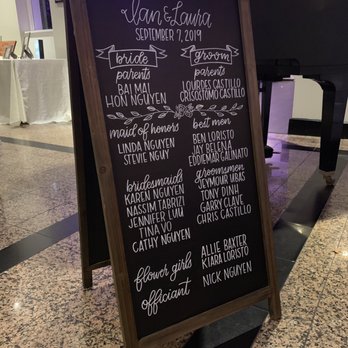 Ian & Laura
SEPTEMBER 7, 2019
bride
parents
BAI MAI
HON NGUYEN
groom
parents
LOURDES CASTILLO
CRISOSTOMO CASTILLO
maid of honors
LINDA NGUYEN
STEVIE NGUY
best men
BEN LORISTO
JAY BELENA
EDDIEMAR GALINATO
bridesmaids
KAREN NGUYEN
NASSIM TABRIZI
JENNIFER LUU
TINA VO
CATHY NGUYEN
groomsmen
SEYMOUR UBAS
TONY DINH
GARRY CLAVE
CHRIS CASTILLO
flower girls
ALLIE BAXTER
KIARA LORISTO
officiant
NICK NGUYEN